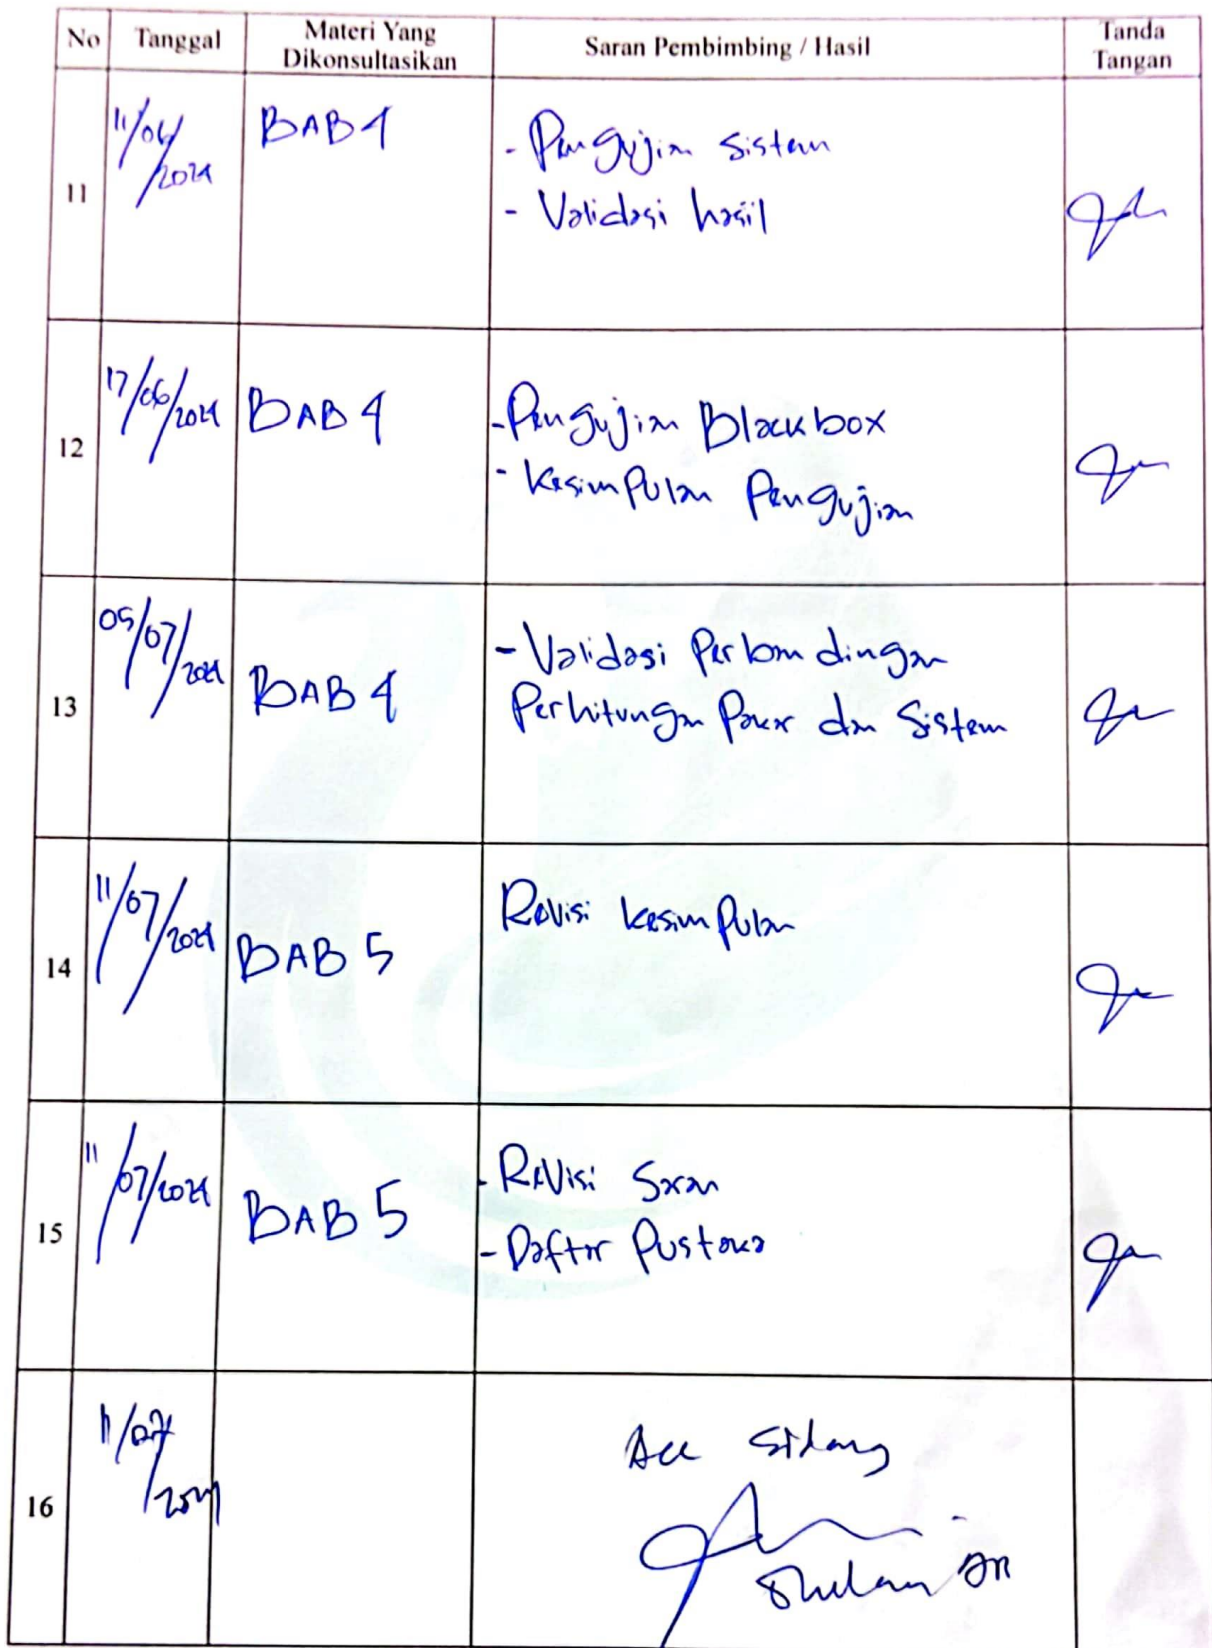 No Tanggal Materi Yang Dikonsultasikan Saran Pembimbing / Hasil Tanda Tangan
11 11/06/2024 BAB 4
- Pengujian Sistem
- Validasi hasil
12 17/06/2024 BAB 4
- Pengujian Blackbox
- Kesimpulan Pengujian
13 05/07/2024 BAB 4
- Validasi Perbandingan
Perhitungan Pakar dan Sistem
14 11/07/2024 BAB 5
Revisi Kesimpulan
15 11/07/2024 BAB 5
- Revisi Saran
- Daftar Pustaka
16 11/07/2024
Acc Sidang